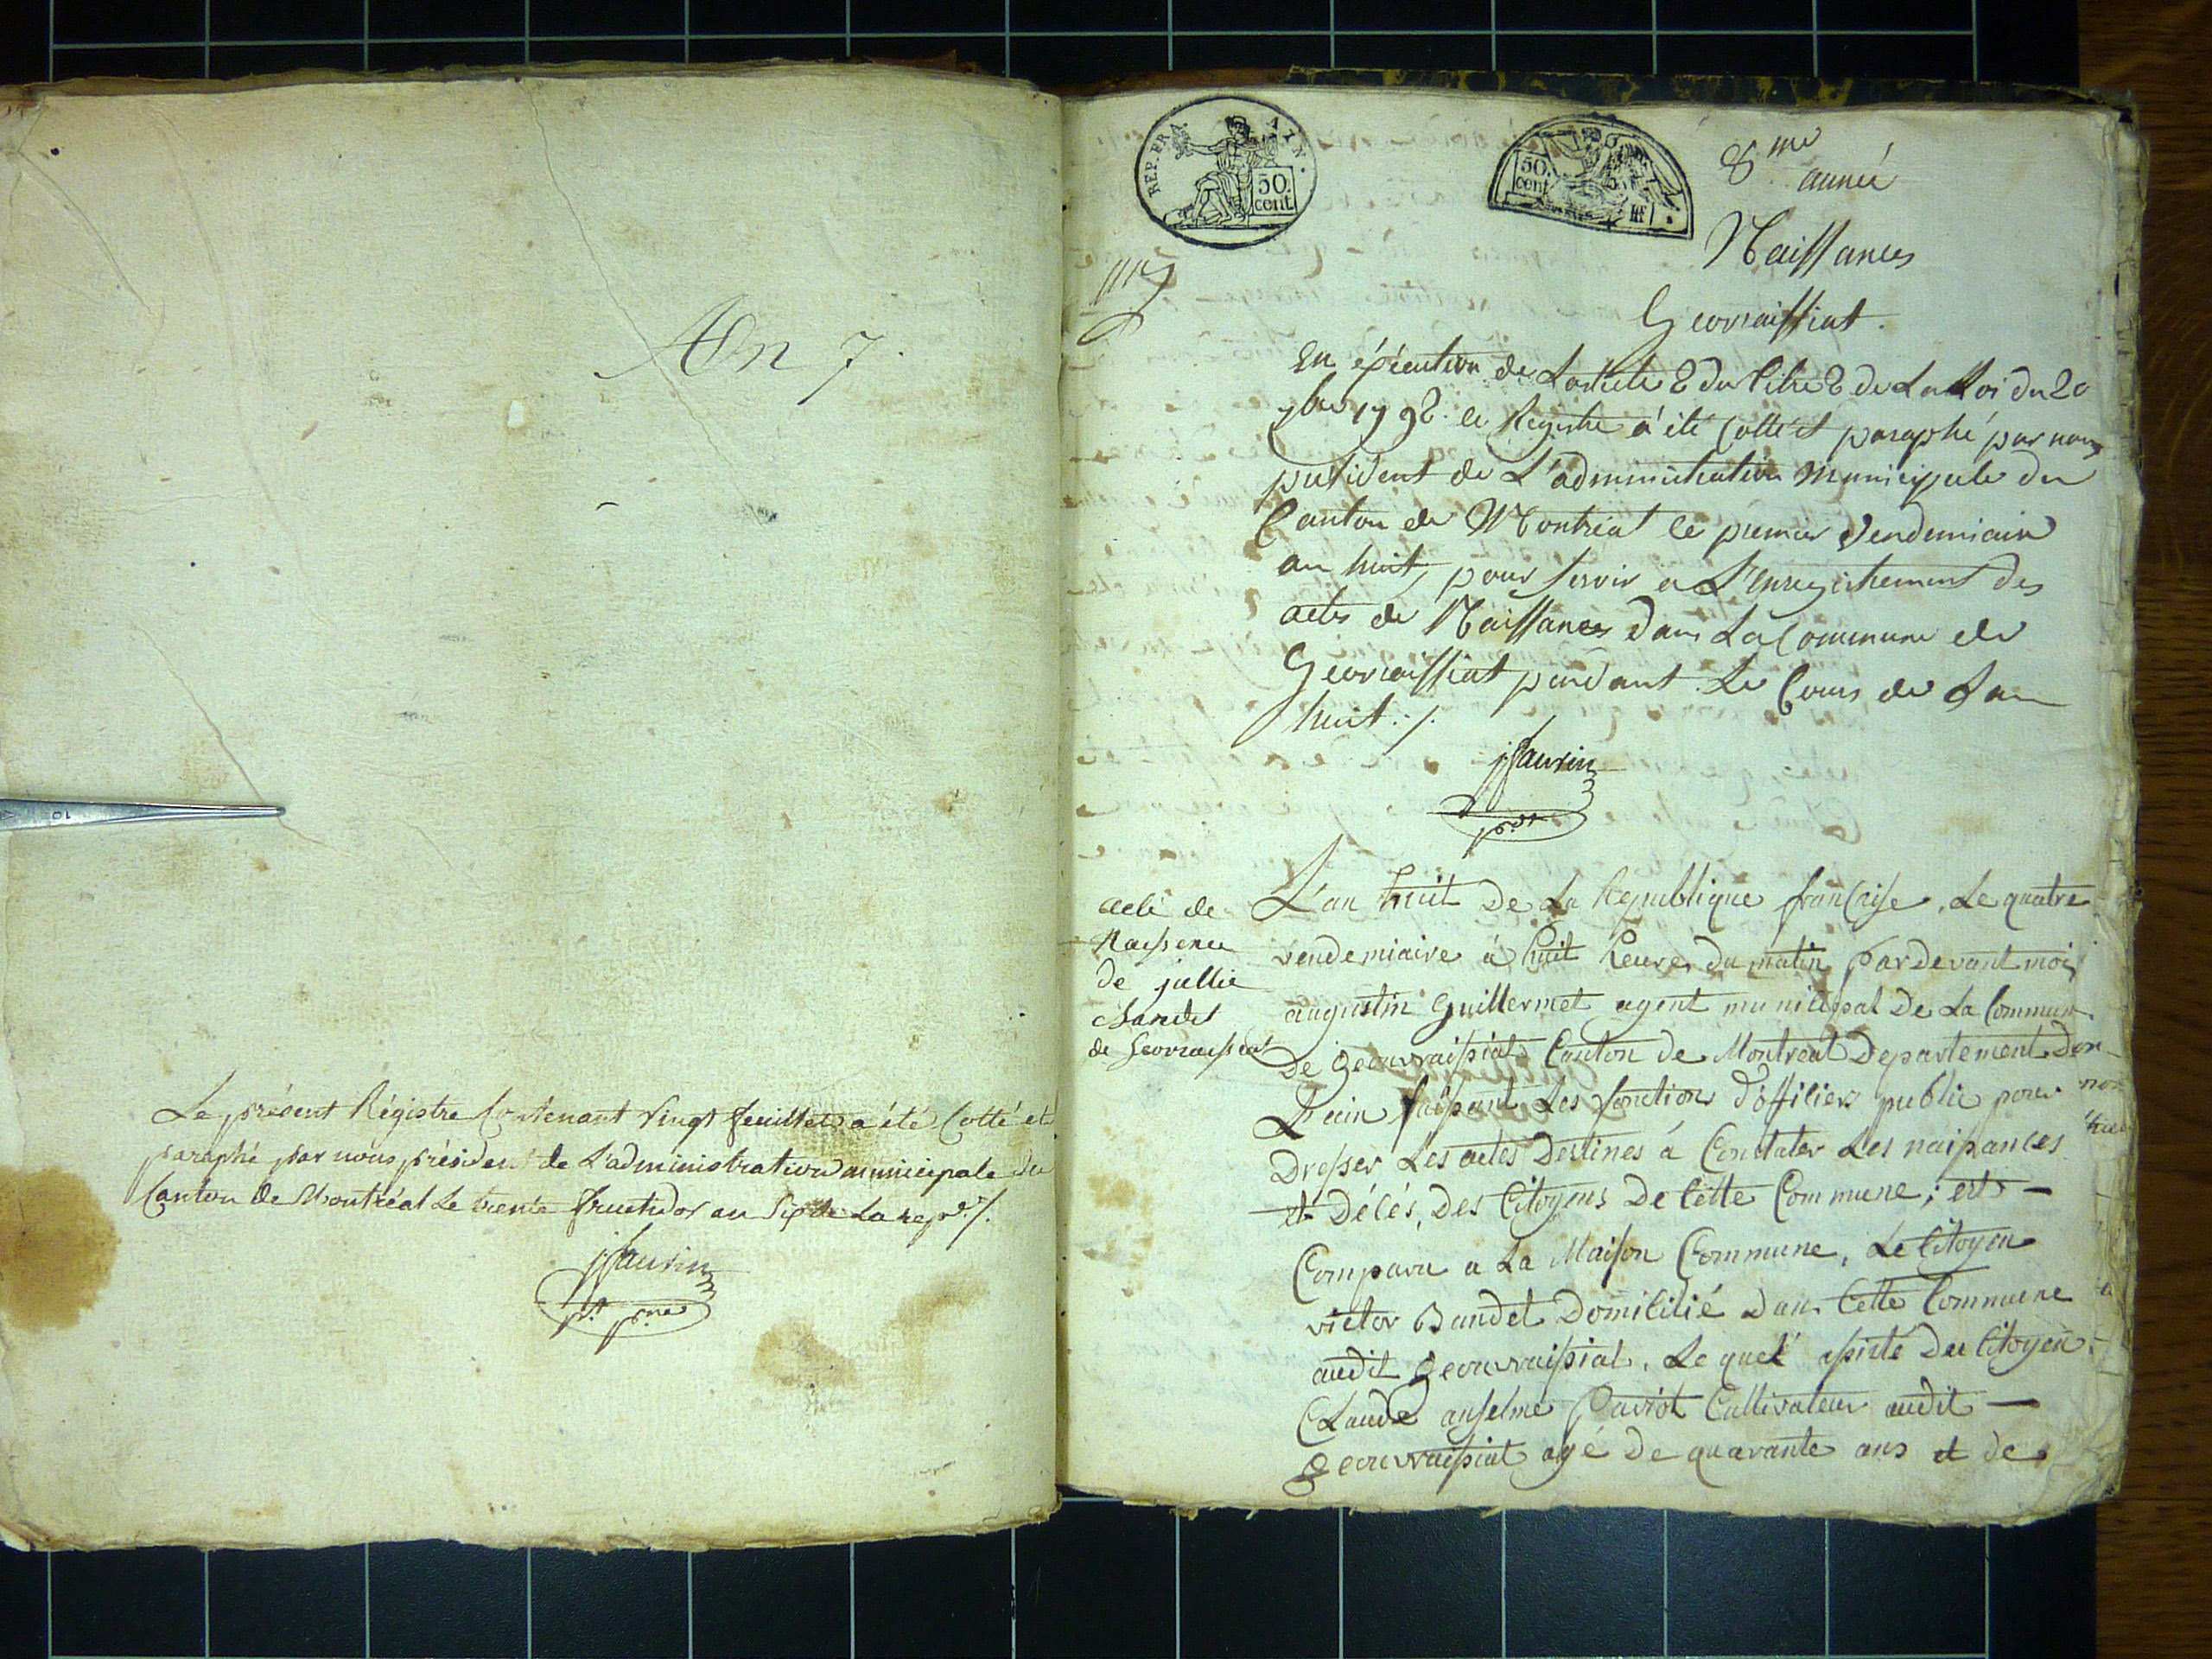 An 7.
Le présent Régistre Contenant vingt feuillets a été Cotté et
paraphé par nous président de L'administration municipale du
Canton de Montréal Le trente fructidor an Six de La repe. /.
jfaurin
pt
REP. FRA.
AIN.
50.
cent.
50.
cent
RF
8me
année
Naissances
Georraissiat.
En éxécution de L'article 2 du titre 2 de La Loi du 20
7bre 1792. le Registre à été Cotté et paraphé par nous
président de L'administration Municipale du
Canton de Montréal le premier Vendemiaire
an huit, pour servir a L'enregistrement des
actes de Naissances dans La Commune de
Georraissiat pendant Le Cours de Lan
huit. /.
jfaurin
pdt
acte de
Naissence
de jullie
Bandet
de Georraissiat
L'an huit De La Republique francaise, Le quatre
vendemiaire à huit heures du matin pardevant moi
augustin Guillermet agent municipal De La Commune
De geouvraissiat Canton de Montreal Departement Den
L'ain faisant Les fonctions D'officier public pour
Dresser Les actes Destinés à Constater Les naissances
et Décés, Des Citoyens De Cette Commune; est -
Comparu a La Maison Commune, Le Citoyen
victor Bandet Domicilié Dans Cette Commune
audit geouvraissiat, Le quel assisté Du Citoyen
Claude anselme Paviot Cultivateur audit -
geouvraissiat agé De quarante ans et de